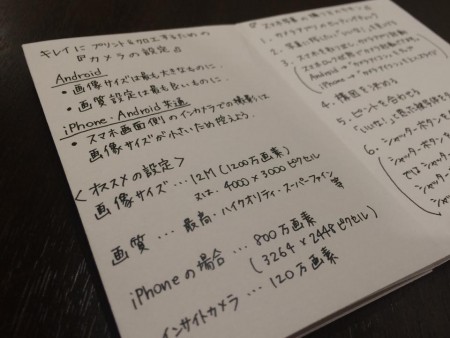 キレイにプリント&クロエするための
カメラの設定
Android
・画像サイズは最も大きなものに.
・画質設定は最も良いものに.
iPhone・Android共通
・スマホ画面側のインカメラでの撮影は
画像サイズが小さいため控えよう.
<オススメの設定>
画像サイズ…12M(1200万画素)
又は、4000×3000ピクセル
画質…最高・ハイクオリティ・スーパーファイン等
iPhoneの場合…800万画素
(3264×2448ピクセル)
インサイトカメラ…120万画素
4. 構図を決める
5. ピントを合わせる
6. シャッターボタンを
シャッターボタンを
では シャッ
シャッター
シャッター